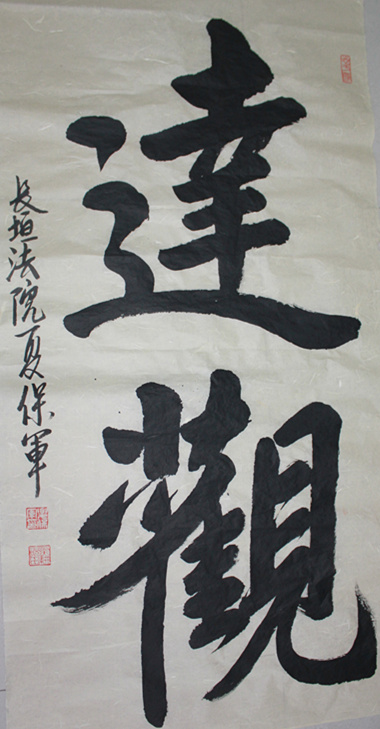 達觀
長垣法院夏保軍